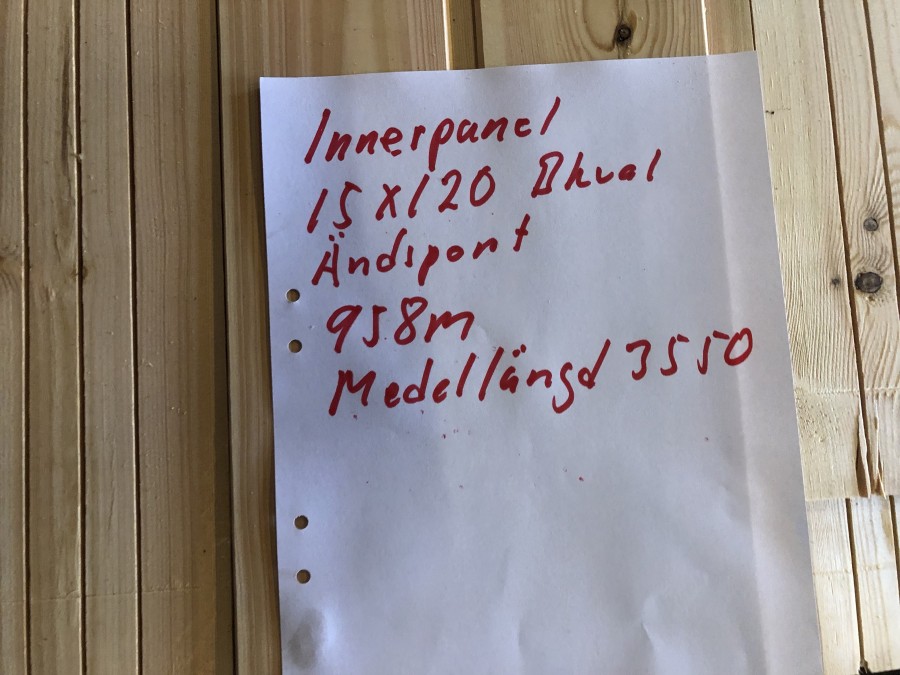 Innerpanel
15x120 IIkval
Ändspont
958m
Medellängd 3550